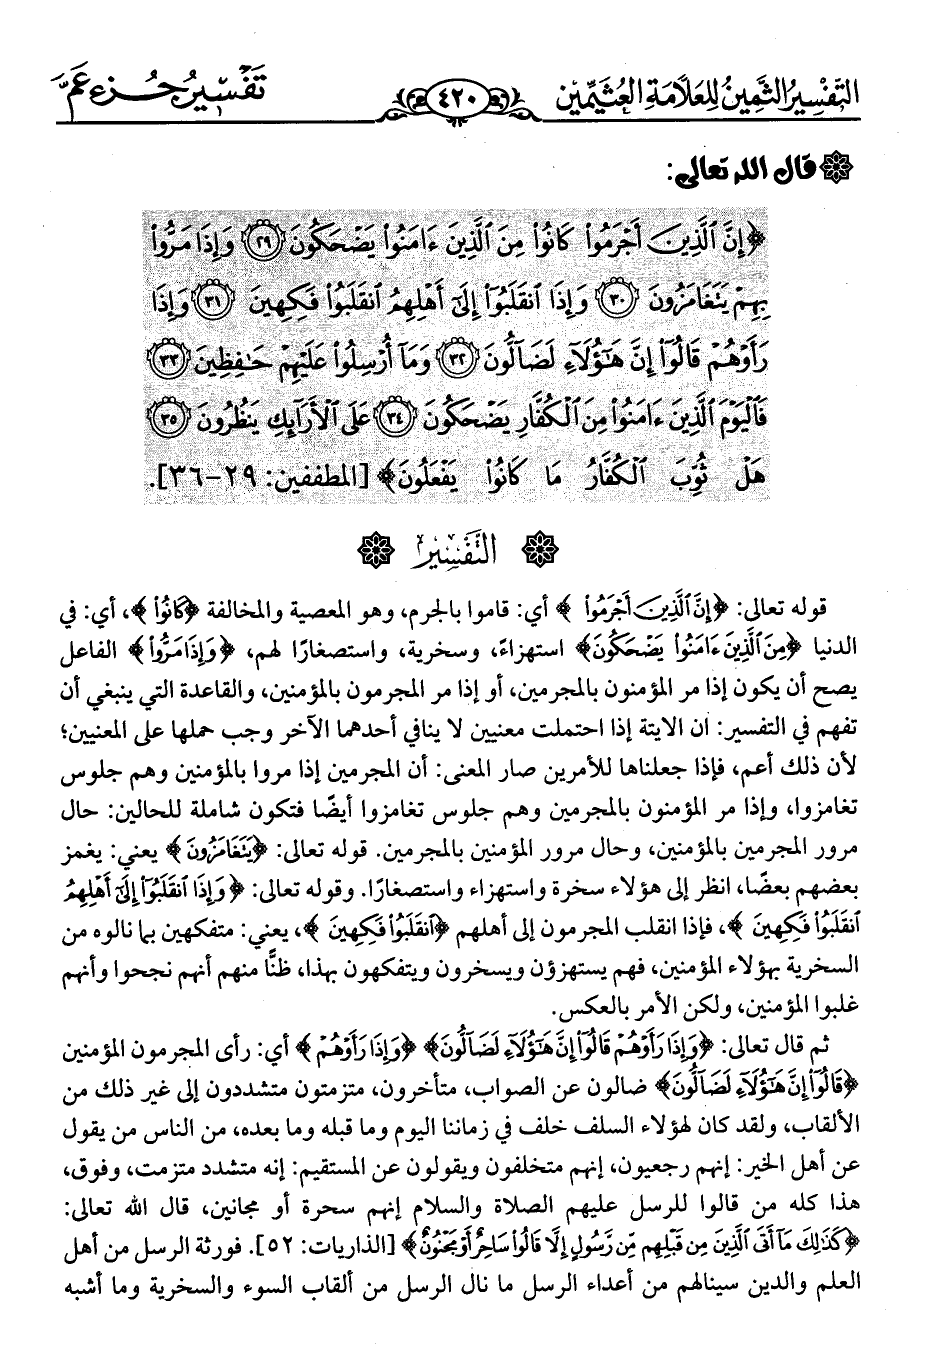 التَّفْسِيرُ الثَّمِينُ لِلعَلَّامَةِ العُثَيْمِين
٤٢٠
تَفْسِيرُ جُزْءِ عَمَّ
قال الله تعالى:
﴿إِنَّ ٱلَّذِينَ أَجْرَمُوا۟ كَانُوا۟ مِنَ ٱلَّذِينَ ءَامَنُوا۟ يَضْحَكُونَ ٢٩ وَإِذَا مَرُّوا۟
بِهِمْ يَتَغَامَزُونَ ٣٠ وَإِذَا ٱنقَلَبُوٓا۟ إِلَىٰٓ أَهْلِهِمُ ٱنقَلَبُوا۟ فَكِهِينَ ٣١ وَإِذَا
رَأَوْهُمْ قَالُوٓا۟ إِنَّ هَٰٓؤُلَآءِ لَضَآلُّونَ ٣٢ وَمَآ أُرْسِلُوا۟ عَلَيْهِمْ حَٰفِظِينَ ٣٣
فَٱلْيَوْمَ ٱلَّذِينَ ءَامَنُوا۟ مِنَ ٱلْكُفَّارِ يَضْحَكُونَ ٣٤ عَلَى ٱلْأَرَآئِكِ يَنظُرُونَ ٣٥
هَلْ ثُوِّبَ ٱلْكُفَّارُ مَا كَانُوا۟ يَفْعَلُونَ﴾ [المطففين: ٢٩-٣٦].
التَّفْسِيرُ
قوله تعالى: ﴿إِنَّ ٱلَّذِينَ أَجْرَمُوا۟﴾ أي: قاموا بالجرم، وهو المعصية والمخالفة ﴿كَانُوا۟﴾، أي: في
الدنيا ﴿مِنَ ٱلَّذِينَ ءَامَنُوا۟ يَضْحَكُونَ﴾ استهزاءً، وسخرية، واستصغارًا لهم، ﴿وَإِذَا مَرُّوا۟﴾ الفاعل
يصح أن يكون إذا مر المؤمنون بالمجرمين، أو إذا مر المجرمون بالمؤمنين، والقاعدة التي ينبغي أن
تفهم في التفسير: ان الايتة إذا احتملت معنيين لا ينافي أحدهما الآخر وجب حملها على المعنيين؛
لأن ذلك أعم، فإذا جعلناها للأمرين صار المعنى: أن المجرمين إذا مروا بالمؤمنين وهم جلوس
تغامزوا، وإذا مر المؤمنون بالمجرمين وهم جلوس تغامزوا أيضًا فتكون شاملة للحالين: حال
مرور المجرمين بالمؤمنين، وحال مرور المؤمنين بالمجرمين. قوله تعالى: ﴿يَتَغَامَزُونَ﴾ يعني: يغمز
بعضهم بعضًا، انظر إلى هؤلاء سخرة واستهزاء واستصغارًا. وقوله تعالى: ﴿وَإِذَا ٱنقَلَبُوٓا۟ إِلَىٰٓ أَهْلِهِمُ
ٱنقَلَبُوا۟ فَكِهِينَ﴾، فإذا انقلب المجرمون إلى أهلهم ﴿ٱنقَلَبُوا۟ فَكِهِينَ﴾، يعني: متفكهين بها نالوه من
السخرية بهؤلاء المؤمنين، فهم يستهزؤن ويسخرون ويتفكهون بهذا، ظنًّا منهم أنهم نجحوا وأنهم
غلبوا المؤمنين، ولكن الأمر بالعكس.
ثم قال تعالى: ﴿وَإِذَا رَأَوْهُمْ قَالُوٓا۟ إِنَّ هَٰٓؤُلَآءِ لَضَآلُّونَ﴾ ﴿وَإِذَا رَأَوْهُمْ﴾ أي: رأى المجرمون المؤمنين
﴿قَالُوٓا۟ إِنَّ هَٰٓؤُلَآءِ لَضَآلُّونَ﴾ ضالون عن الصواب، متأخرون، متزمتون متشددون إلى غير ذلك من
الألقاب، ولقد كان لهؤلاء السلف خلف في زماننا اليوم وما قبله وما بعده، من الناس من يقول
عن أهل الخير: إنهم رجعيون، إنهم متخلفون ويقولون عن المستقيم: إنه متشدد متزمت، وفوق،
هذا كله من قالوا للرسل عليهم الصلاة والسلام إنهم سحرة أو مجانين، قال الله تعالى:
﴿كَذَٰلِكَ مَآ أَتَى ٱلَّذِينَ مِن قَبْلِهِم مِّن رَّسُولٍ إِلَّا قَالُوا۟ سَاحِرٌ أَوْ مَجْنُونٌ﴾ [الذاريات: ٥٢]. فورثة الرسل من أهل
العلم والدين سينالهم من أعداء الرسل ما نال الرسل من ألقاب السوء والسخرية وما أشبه